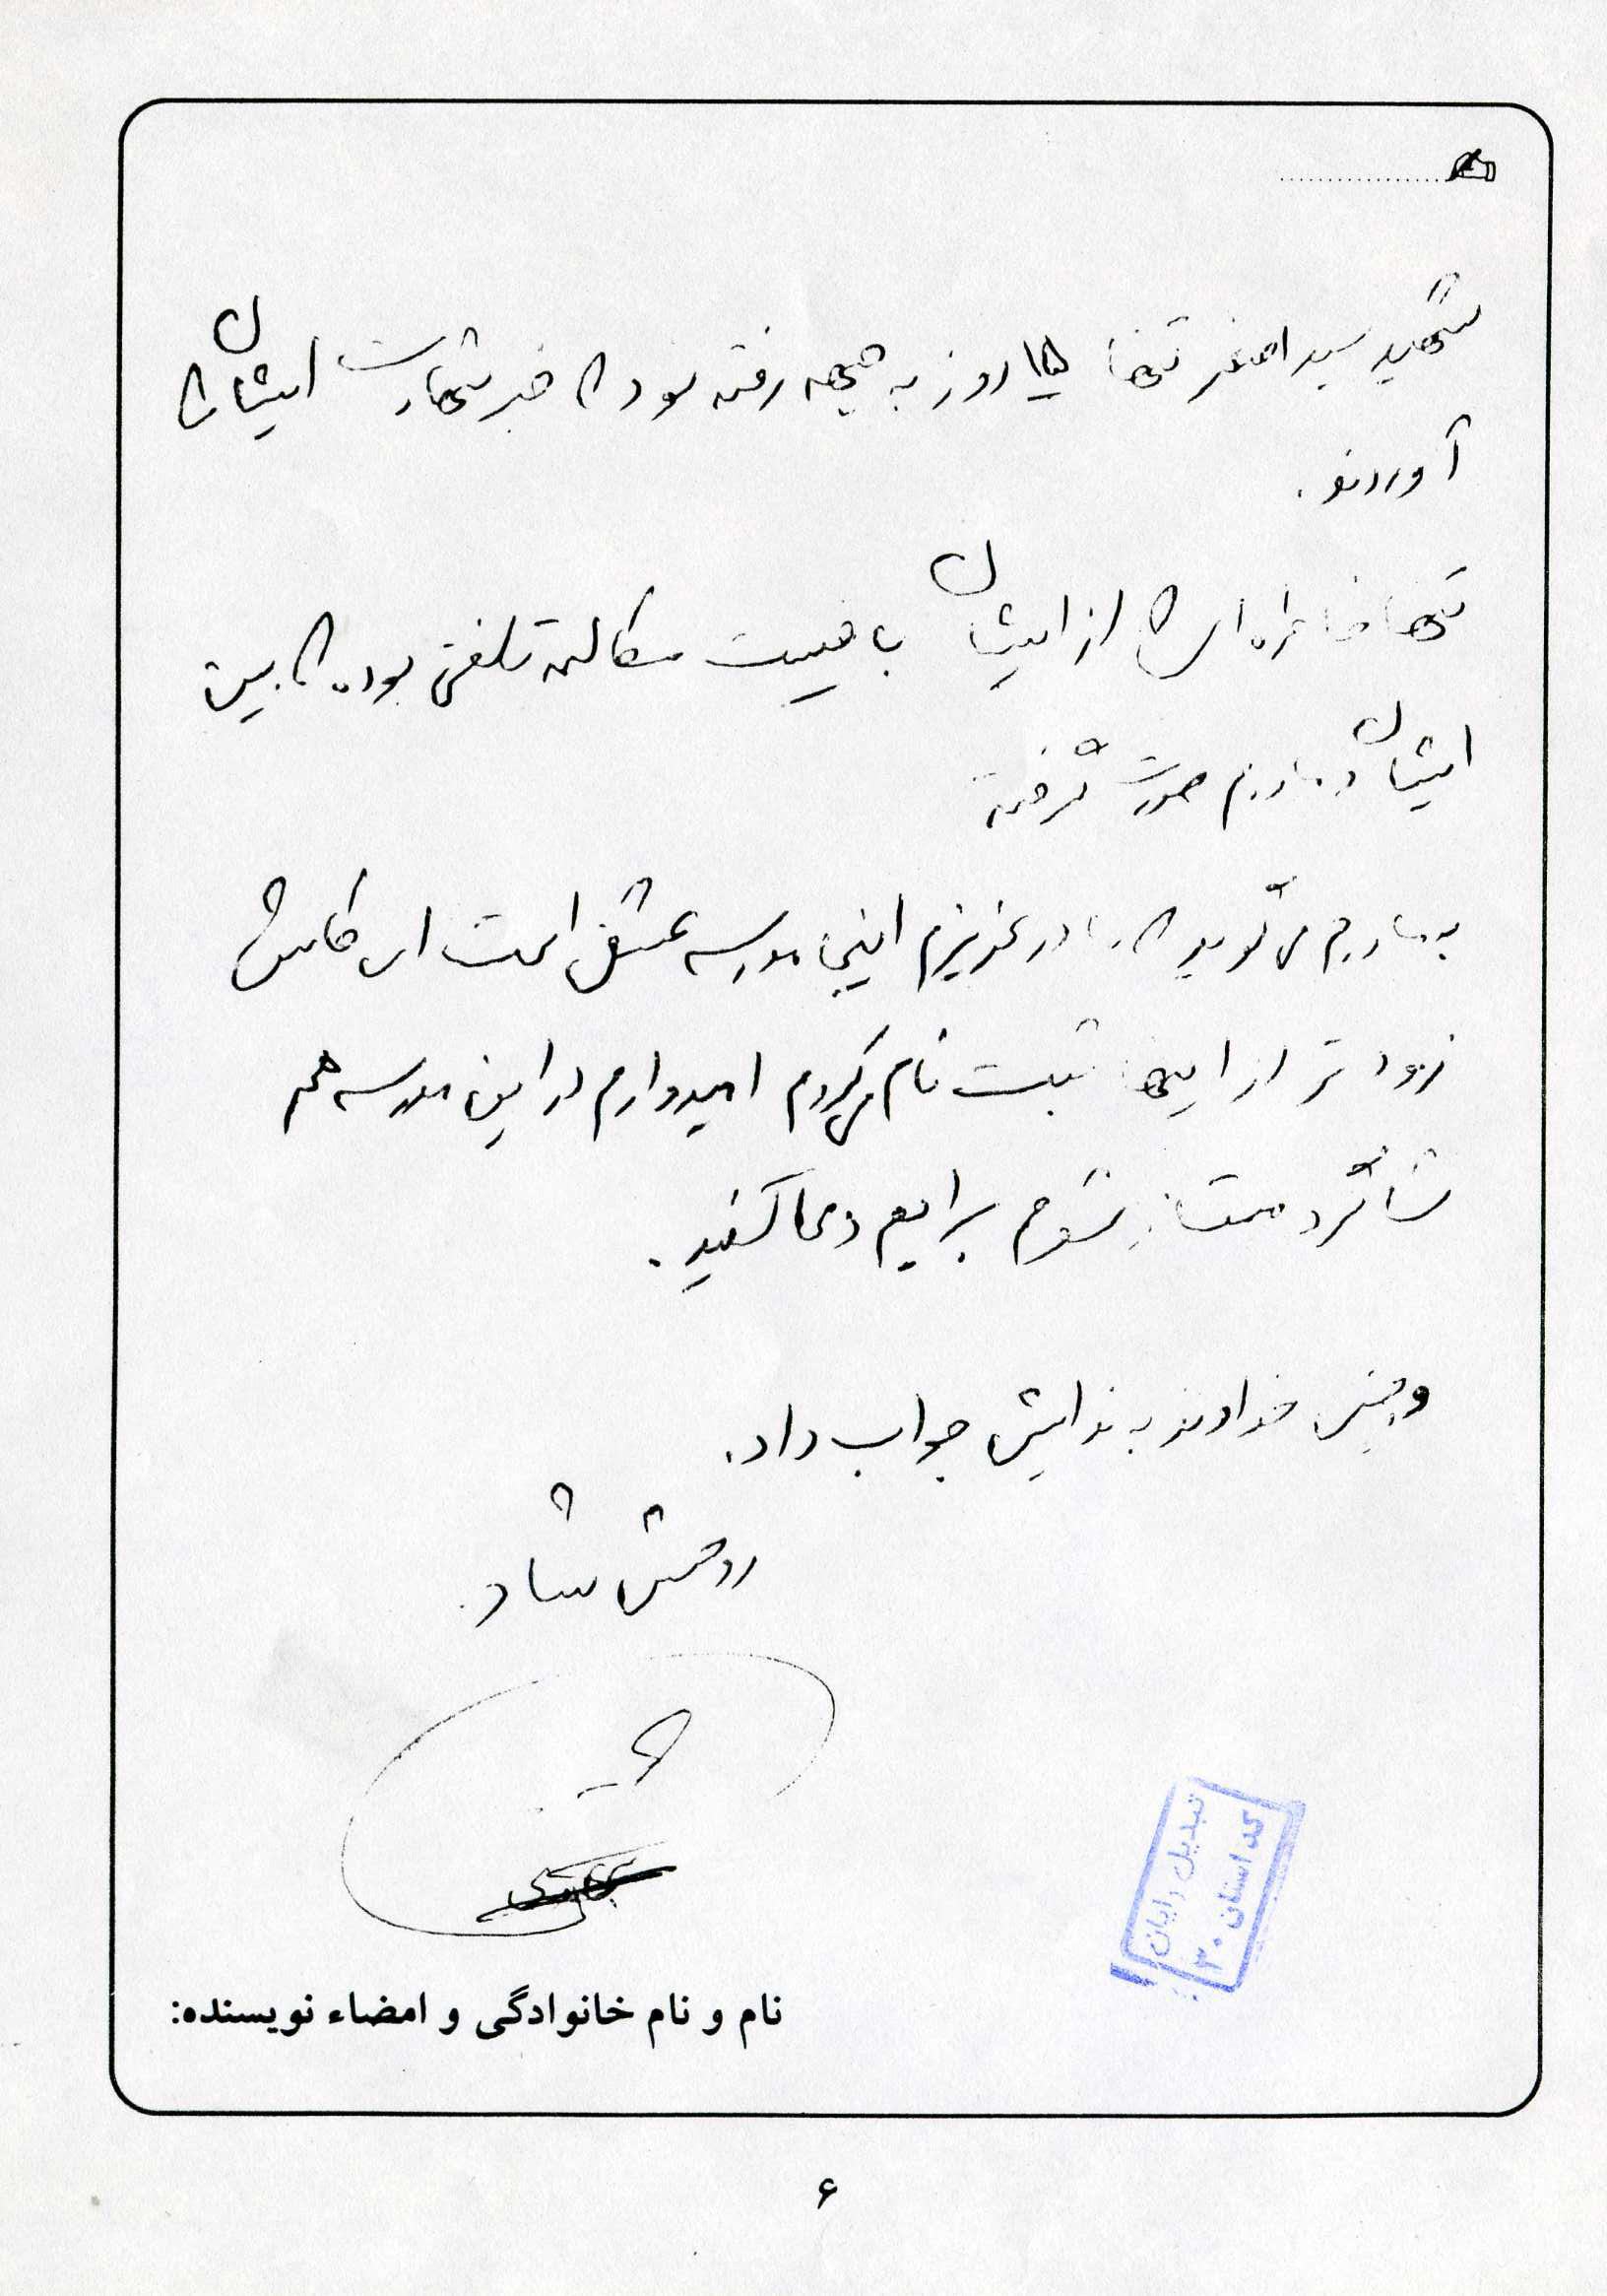 شهید سید اصغر تنها ۱۵ روز به جبهه رفته بود که خبر شهادت ایشان را
آوردند.
تنها خاطره ای که از ایشان باقیست مکالمه تلفنی بوده که بین
ایشان و مادرم صورت گرفته
به مادرم می گوید که مادر عزیزم اینجا مدرسه عشق است ای کاش
زودتر از اینها ثبت نام می کردم امیدوارم در این مدرسه هم
شاگرد ممتاز بشوم برایم دعا کنید.
و چنین خداوند به ندایش جواب داد.
روحش شاد.
تبدیل رایان
کد استان ۳۰
نام و نام خانوادگی و امضاء نویسنده:
۶